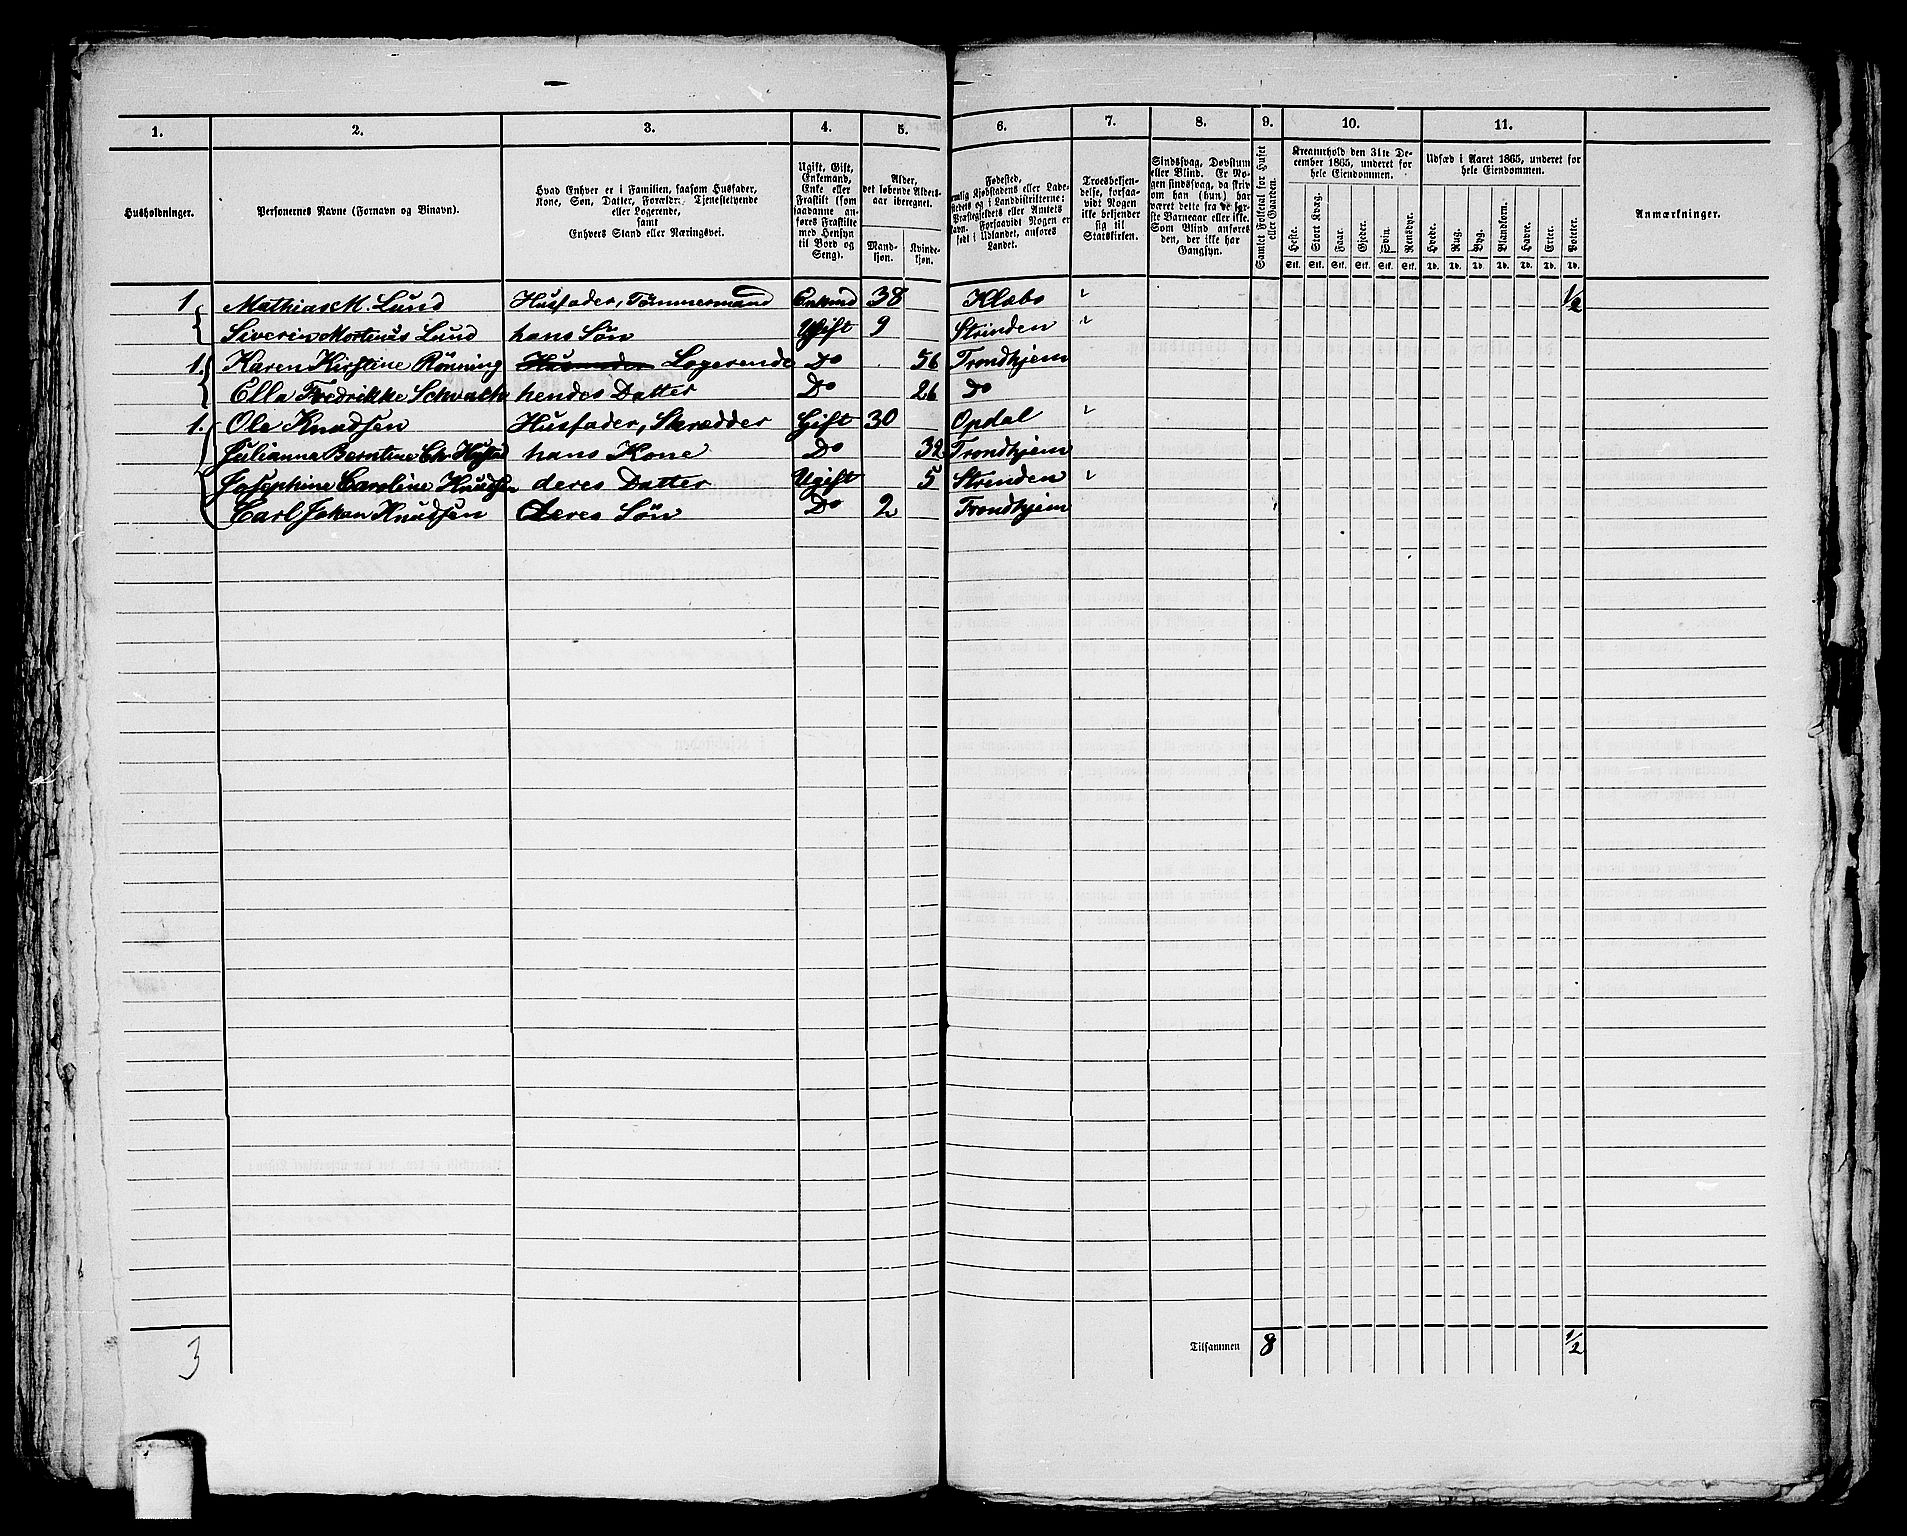 1. 2. 3. 4. 5. 6. 7. 8. 9. 10. 11.
Husholdninger.
Personernes Navne (Fornavn og Binavn).
Hvad Enhver er i Familien, saasom Husfader,
Kone, Søn, Datter, Forældre, Tjenestetyende
eller Logerende,
samt
Enhvers Stand eller Næringsvei.
Ugift, Gift,
Enkemand,
Enke eller
Fraskilt (som
saadanne an-
føres Fraskilte
med Hensyn
til Bord og
Seng).
Alder,
det løbende Alders-
aar iberegnet.
Mand-
kjøn.
Kvinde-
kjøn.
Fødested,
Troesbekjen-
delse, forsaa-
vidt Nogen
ikke bekjender
sig til
Statskirken.
Sindssvag, Døvstum
eller Blind. Er No-
gen sindssvag, da skriv
om han (hun) har
været dette fra de før-
ste Barneaar eller ikke.
Som Blind anføres
den, der ikke har
Gangsyn.
Samlet Folketal for Huset
eller Gaarden.
Kreaturhold den 31te De-
cember 1865, underet for
hele Eiendommen.
Heste. Stort Kvæg. Faar. Gjeder. Svin. Rensdyr.
Stk. Stk. Stk. Stk. Stk. Stk.
Udsæd i Aaret 1865, underet for
hele Eiendommen.
Hvede. Rug. Byg. Blandkorn. Havre. Erter. Poteter.
Td. Td. Td. Td. Td. Td. Td.
Anmærkninger.
1 Mathias M. Lund Husfader, Tømmermand Enkemd 38 Klæbo " 1/2
Siveris Mortinus Lund hans Søn Ugift 9 Strinden "
1. Karen Kirstine Rönning Logerende Do 56 Trondhjem
Ella Fredrikke Schwach hendes Datter Do 26 Do
1. Ole Knudsen Husfader, Skrædder Gift 30 Opdal "
Julianna Berntine Chr. hans Kone Do 32 Trondhjem
Josephine Caroline Knudsen deres Datter Ugift 5 Strinden "
Carl Johan Knudsen deres Søn Do 2 Trondhjem
3 Tilsammen 8 1/2